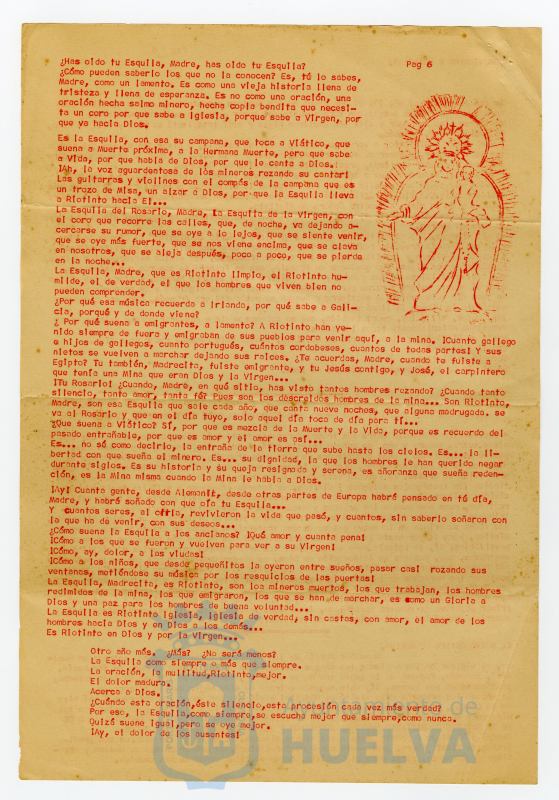 ¿Has oído tu Esquila, Madre, has oído tu Esquila?
Pag 6
¿Cómo pueden saberlo los que no la conocen? Es, tú lo sabes,
Madre, como un lamento. Es como una vieja historia llena de
tristeza y llena de esperanza. Es no como una oración, una
oración hecha salmo minero, hecha copla bendita que necesi-
ta un coro por que sabe a Iglesia, porque sabe a Virgen, por
que va hacia Dios.
Es la Esquila, con esa su campana, que toca a Viático, que
suena a Muerte próxima, a la Hermana Muerte, pero que sabe
a Vida, por que habla de Dios, por que le canta a Dios.
¡Ah, la voz aguardentosa de los mineros rezando su cantar!
Las guitarras y violines con el compás de la campana que es
un trozo de Misa, un alzar a Dios, por que la Esquila lleva
a Riotinto hacia El...
La Esquila del Rosario, Madre, La Esquila de la Virgen, con
el coro que recorre las calles, que, de noche, va dejando a-
cercarse su rumor, que se oye a lo lejos, que se siente venir,
que se oye más fuerte, que se nos viene encima, que se clava
en nosotros, que se aleja después, poco a poco, que se pierde
en la noche...
La Esquila, Madre, que es Riotinto limpio, el Riotinto hu-
milde, el de verdad, el que los hombres que viven bien no
pueden comprender.
¿Por qué esa música recuerda a Irlanda, por qué sabe a Gali-
cia, porqué y de donde viene?
¿ Por qué suena a emigrantes, a lamento? A Riotinto han ve-
nido siempre de fuera y emigraban de sus pueblos para venir aquí, a la mina. ¡Cuanto gallego
e hijos de gallegos, cuanto portugués, cuántos cordobeses, cuantos de todas partes! Y sus
nietos se vuelven a marchar dejando sus raíces. ¿Te acuerdas, Madre, cuando te fuiste a
Egipto? Tu también, Madrecita, fuiste emigrante, y tu Jesús contigo, y José, el carpintero
que tenía una Mina que eran Dios y la Virgen...
¡Tu Rosario! ¿Cuando, Madre, en qué sitio, has visto tantos hombres rezando? ¿Cuando tanto
silencio, tanto amor, tanta fé? Pues son los descreídos hombres de la mina... Son Riotinto,
Madre, son esa Esquila que sale cada año, que canta nueve noches, que alguna madrugada. se
va al Rosario y que un el día tuyo, solo aquel día toca de día para tí...
¿Que suena a Viático? Sí, por que es mezcla de la Muerte y la Vida, porque es recuerdo del
pasado entrañable, por que es amor y el amor es así...
Es... no sé como decirlo, la entraña de la tierra que sube hasta los cielos. Es... la li-
bertad con que sueña el minero. Es... su dignidad, la que los hombres le han querido negar
durante siglos. Es su historia y su queja resignada y serena, es añoranza que sueña reden-
ción, es la Mina misma cuando la Mina le habla a Dios.
¡Ay! Cuanta gente, desde Alemania, desde otras partes de Europa habrá pensado en tú día,
Madre, y habrá soñado con que oía tu Esquila...
Y cuantos seres, al oírla, revivieron la vida que pasó, y cuantos, sin saberlo soñaron con
la que ha de venir, con sus deseos...
¿Cómo suena la Esquila a los ancianos? ¡Qué amor y cuanta pena!
¡Cómo a los que se fueron y vuelven para ver a su Virgen!
¡Cómo, ay, dolor, a las viudas!
¡Cómo a los niños, que desde pequeñitos la oyeron entre sueños, pasar casi rozando sus
ventanas, metiéndose su música por los resquicios de las puertas!
La Esquila, Madrecita, es Riotinto, son los mineros muertos, los que trabajan, los hombres
redimidos de la mina, los que emigraron, los que se han de marchar, es como un Gloria a
Dios y una paz para los hombres de buena voluntad...
La Esquila es Riotinto Iglesia, Iglesia de verdad, sin castas, con amor, el amor de los
hombres hacia Dios y en Dios a los demás...
Es Riotinto en Dios y por la Virgen...
Otro año más. ¿Más? ¿No será menos?
La Esquila como siempre o más que siempre.
La oración, la multitud,Riotinto,mejor.
El dolor madura.
Acerca a Dios.
¿Cuándo esta oración,éste silencio,esta procesión cada vez más verdad?
Por eso, la Esquila,como siempre,se escucha mejor que siempre,como nunca.
Quizá suene igual,pero se oye mejor.
¡Ay, el dolor de los ausentes!
Ayuntamiento de
HUELVA